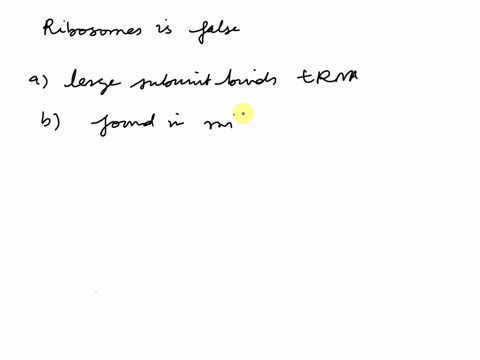 Ribosomes is false
a) large subunit binds tRNA
b) found in mi